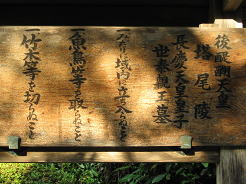 後醍醐天皇
塔尾陵
長慶天皇皇子
世泰親王墓
一、みだりに域内に立ち入らぬこと
一、魚鳥等を取らぬこと
一、竹木等を切らぬこと